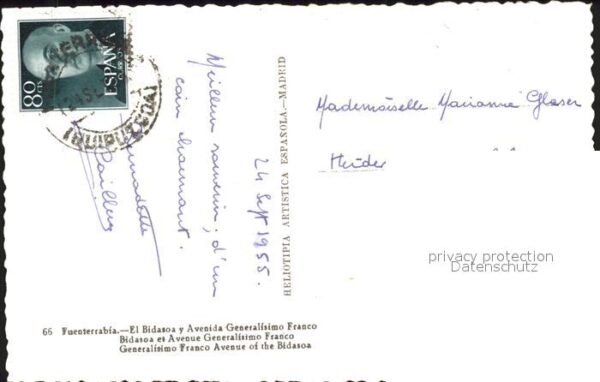 80 CTS
ESPAÑA
CORREOS
(GUIPUZCOA)
Meilleur souvenir, d'un
coin charmant.
Bernadette
24 Sept 1955.
HELIOTIPIA ARTISTICA ESPAÑOLA.—MADRID
Mademoiselle Marianne Glaser
privacy protection
Datenschutz
66 Fuenterrabía.—El Bidasoa y Avenida Generalísimo Franco
Bidasoa et Avenue Generalísimo Franco
Generalísimo Franco Avenue of the Bidasoa